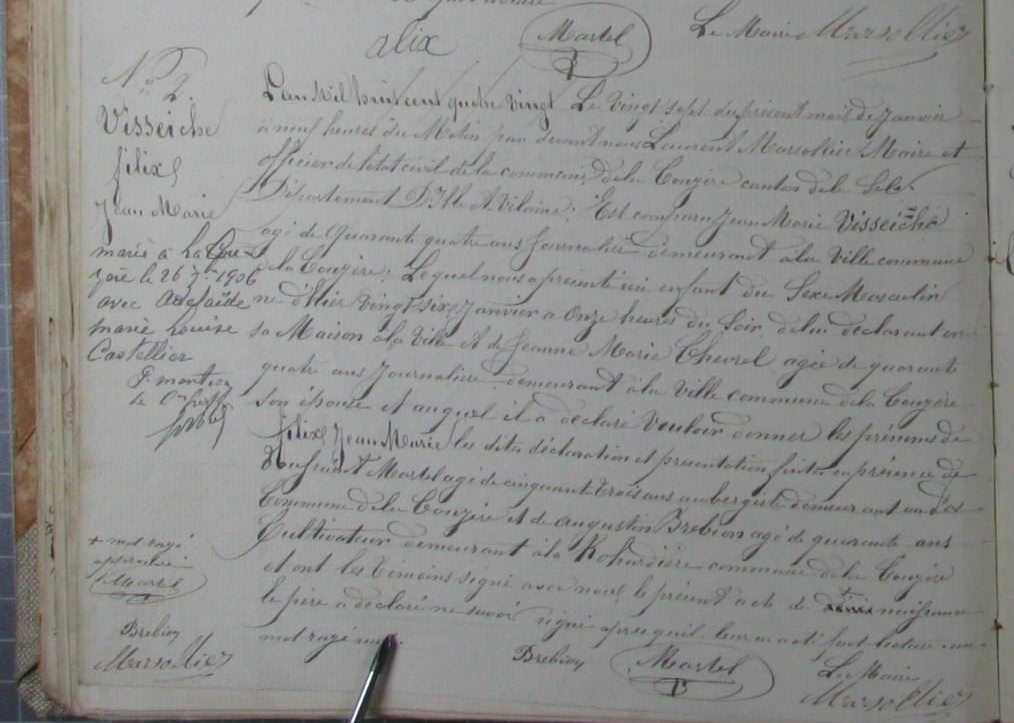 alix
Martel
Le Maire Marsollier
N° 2.
Visseiche
félix
Jean Marie
marié à La Cou
zère le 26 7bre 1906
avec Adélaïde
marie Louise
Castellier
L'an Mil huit cent quatre vingt Le Vingt sept du présent mois de Janvier
à neuf heures du Matin par devant nous Laurent Marsollier Maire et
officier de l'état civil de la commune de la Couyère canton de le Sel
Département D'Ille et Vilaine; Est comparu Jean Marie Visseiche
agé de Quarante quatre ans Journalier demeurant à la Ville commune
de la Couyère; Lequel nous a présenté un enfant du Sexe Masculin
né d'hier Vingt-six Janvier à Onze heures du Soir de lui déclarant en
sa Maison à la Ville et de Jeanne Marie Chevrel agée de quarante
quatre ans Journalière demeurant à la Ville commune de la Couyère
son épouse et auquel il a déclaré Vouloir donner les prénoms de
félix Jean Marie les dites déclaration et présentation faites en présence de
Martel agé de cinquante trois ans aubergiste demeurant au
Commune de la Couyère et de augustin Brebion agé de quarante ans
Cultivateur demeurant à la commune de la Couyère
et ont les témoins signé avec nous le présent acte de naissance
le père a déclaré ne savoir signé après qu'il leur en a été fait lecture. un
mot rayé nul
+ mot rayé
approuvé
Martel
Brebion
Marsollier
Brebion
Martel
Le Maire
Marsollier